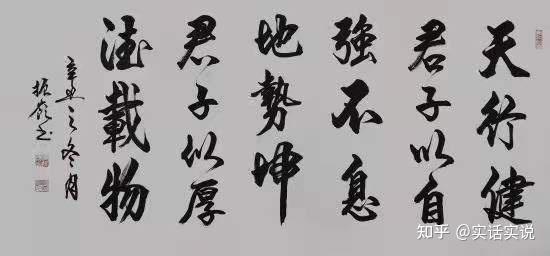 天行健
君子以自
強不息
地勢坤
君子以厚
德載物
辛丑之冬月
知乎 @实话实说